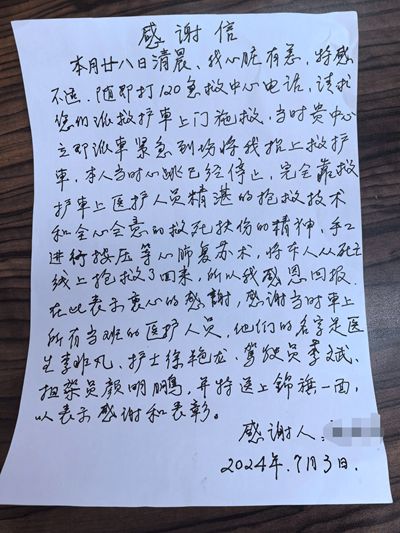 感谢信
本月廿八日清晨、我心脏有恙，特感
不适．随即打120急救中心电话，请求
您们派救护车上门施救，当时贵中心
立即派车紧急到场将我抬上救护
车，本人当时心跳已经停止，完全靠救
护车上医护人员精湛的抢救技术
和全心全意的救死扶伤的精神，手工
进行按压等心肺复苏术，将本人从死亡
线上抢救了回来，所以我感恩回报．
在此表示衷心的感謝，感谢当时车上
所有当班的医护人员，他们的名字是医
生李非凡、护士徐艳龙、驾驶员季文斌、
担架员顔明鵬，并特送上錦旗一面，
以表示感谢和表彰。
感谢人：
2024年．7月3日．